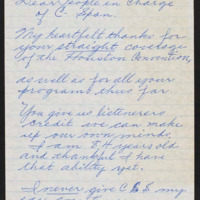 Dear People in Charge
of C-Span.
My heartfelt thanks for
your straight coverage
of the Houston Convention,
as well as for all your
programs thus far.
You give us listeners
credit we can make
up our own minds.
I am 84 years old
and thankful I have
that ability yet.
I never give C B S my